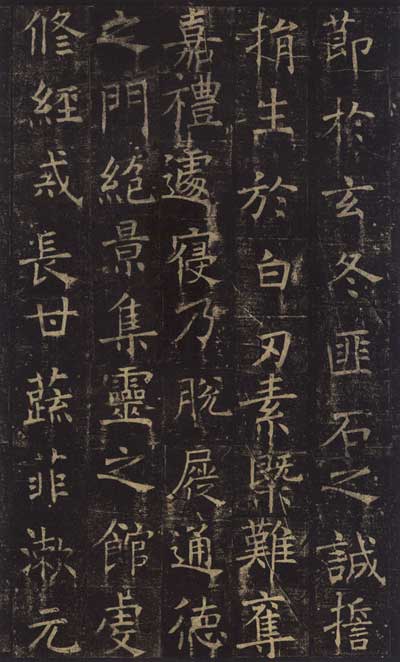 莭於玄冬匪石之誠擔
捐生於白刃素槩難奪
嘉禮遽寑乃脫屣通德
之門絕景集靈之館虔
脩經戒長甘蔬菲漱元